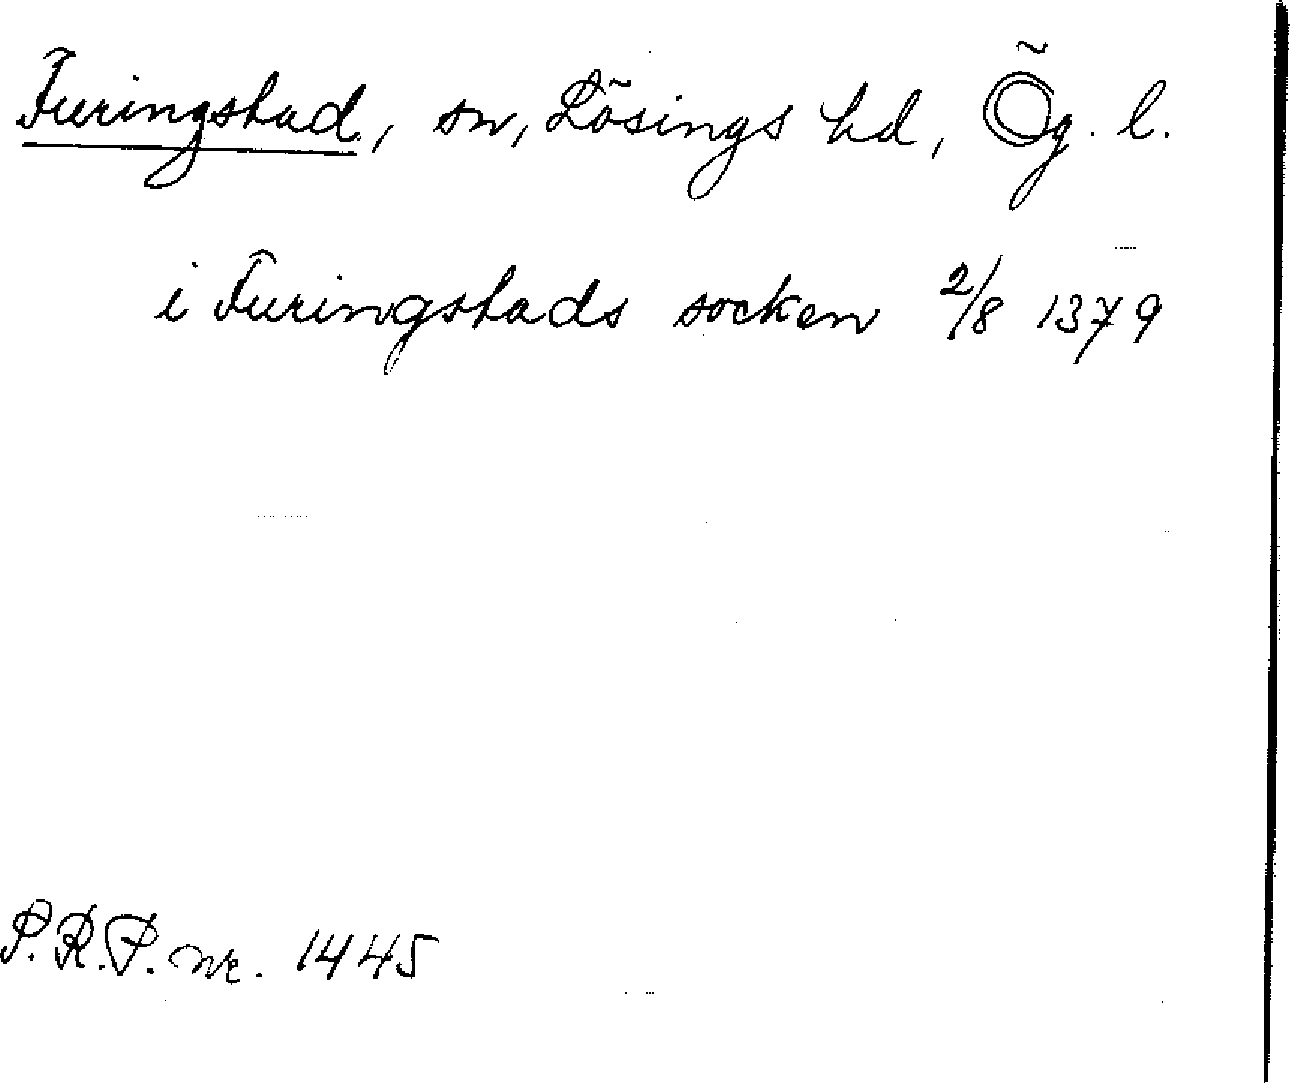 Furingstad, sn, Lösings hd, Ög. l.
i Furingstads socken 2/8 1379
P.R.P. nr. 1445